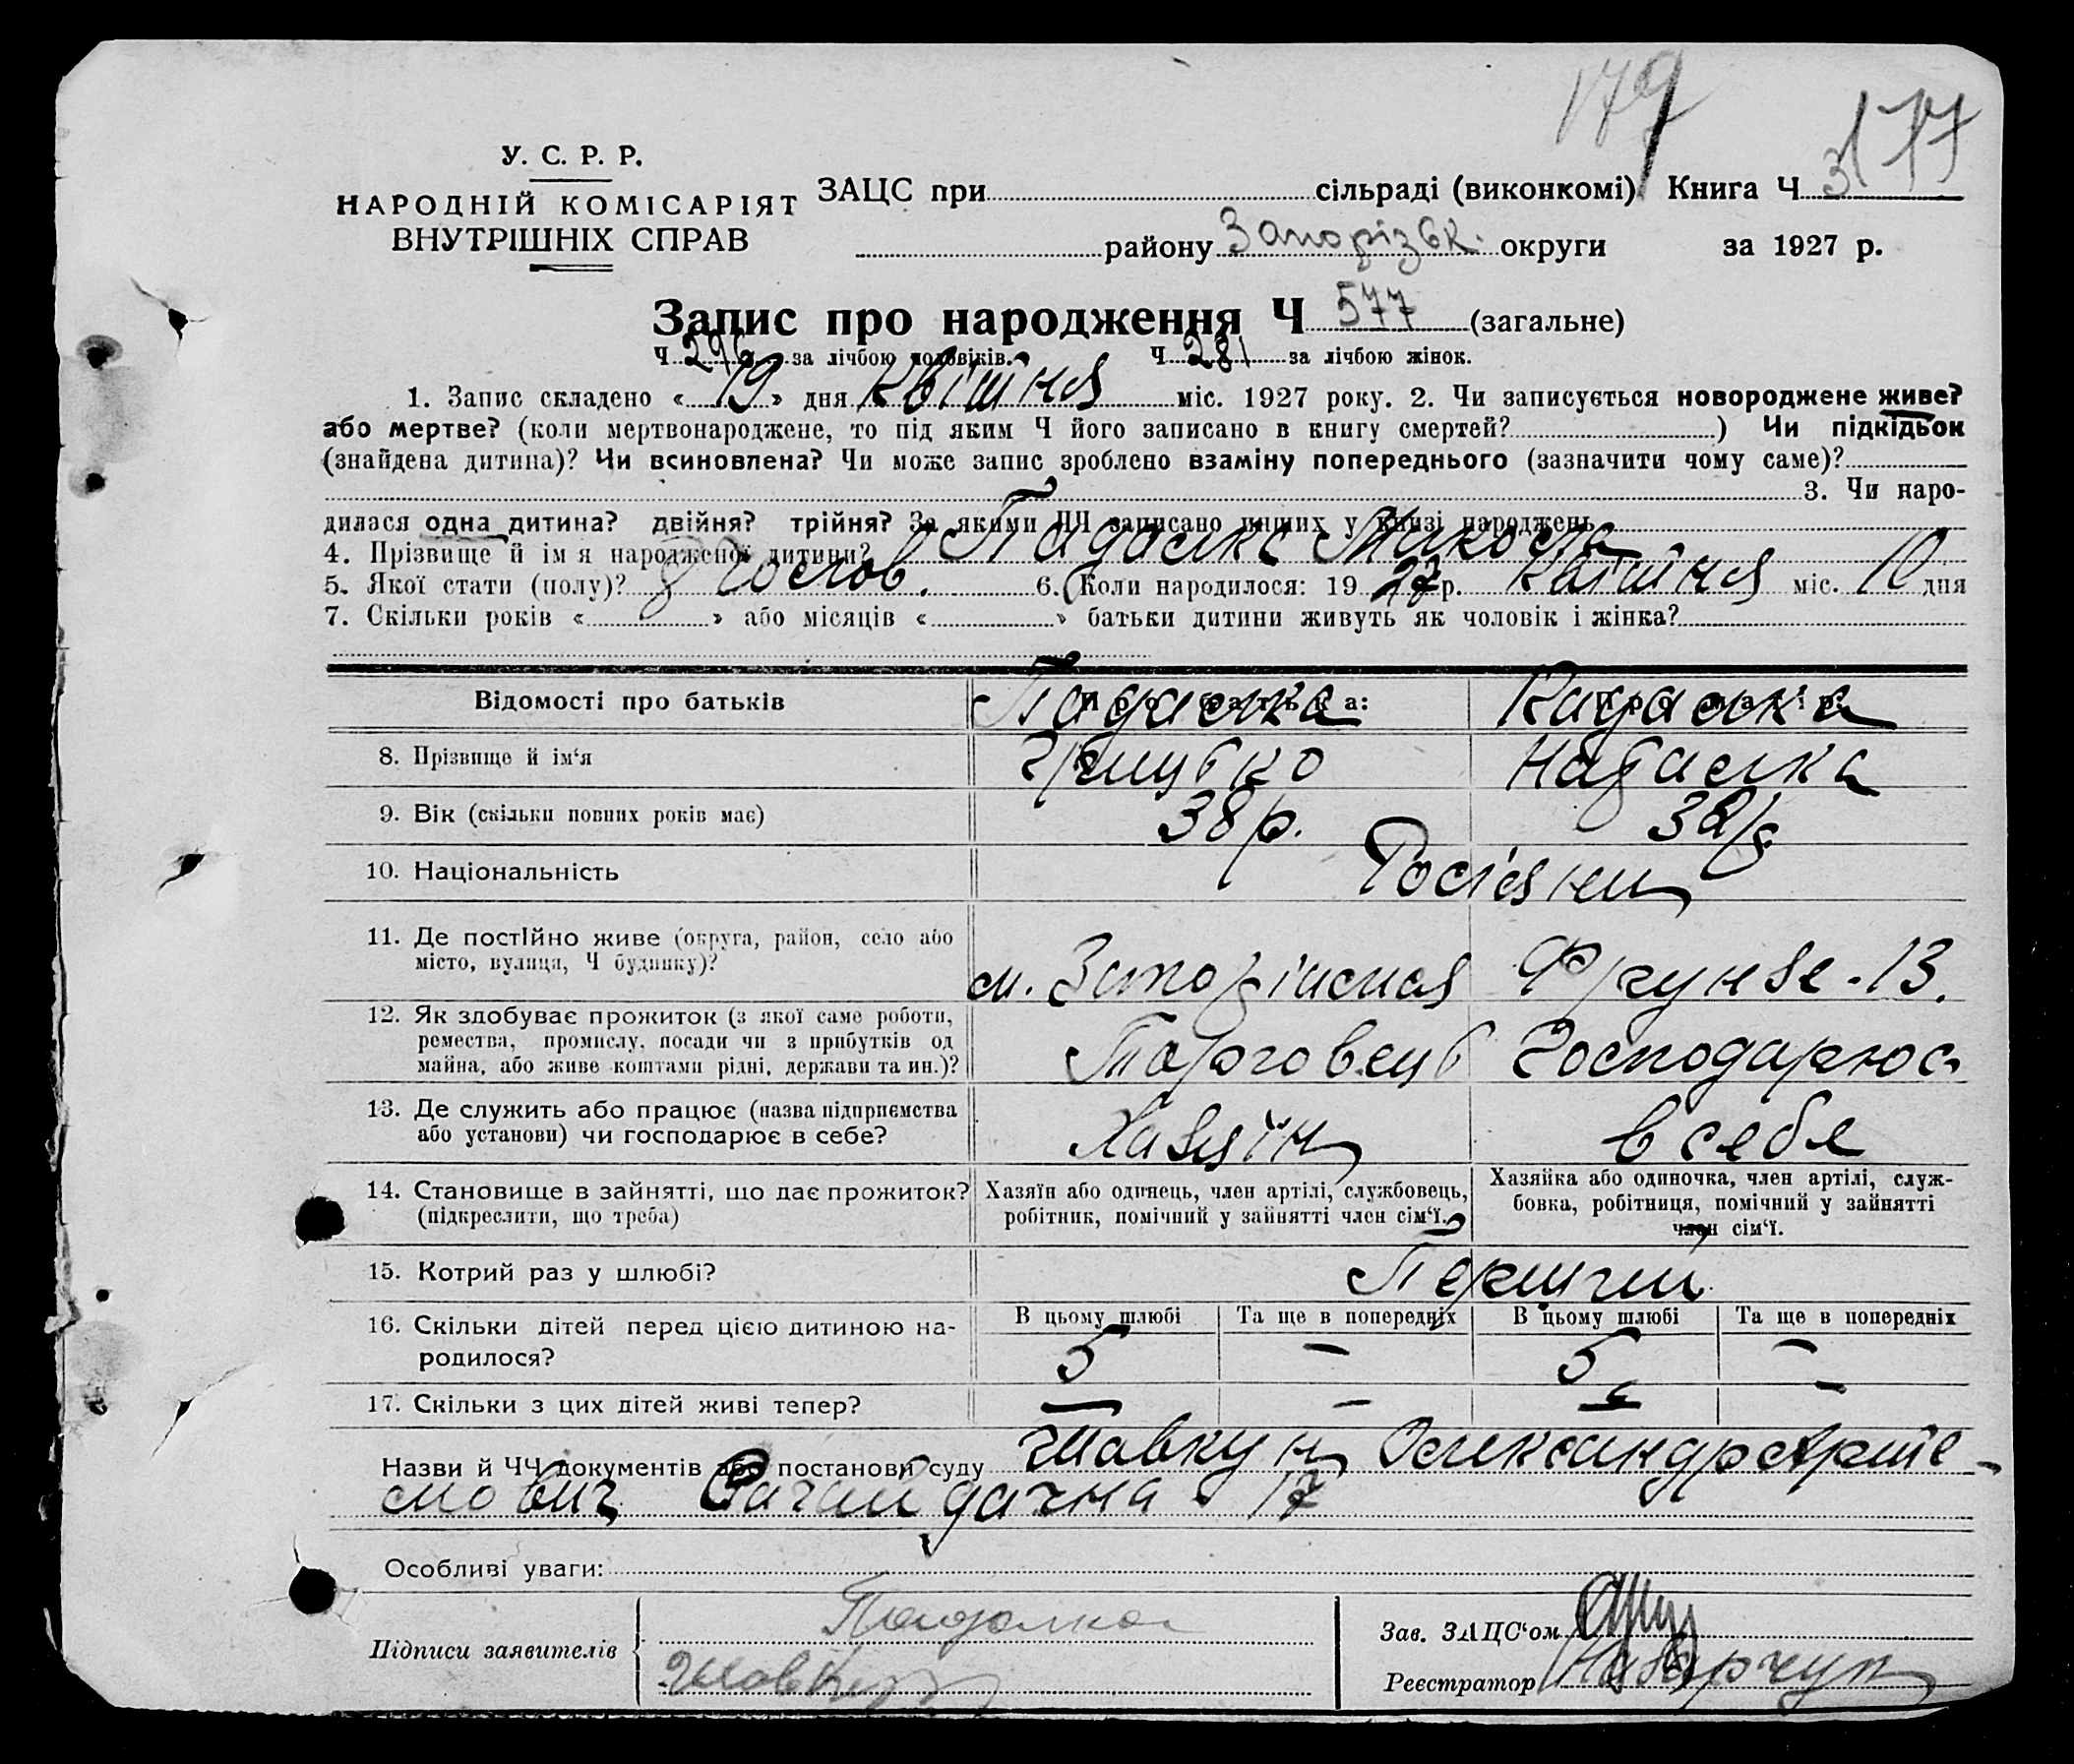 179
177
У. С. Р. Р.
НАРОДНІЙ КОМІСАРІЯТ
ВНУТРІШНІХ СПРАВ
ЗАЦС при сільраді (виконкомі) Книга Ч 3
району Запорізьк. округи за 1927 р.
Запис про народження Ч 577 (загальне)
Ч 296 за лічбою чоловіків. Ч 281 за лічбою жінок.
1. Запис складено « 19 » дня Квітня міс. 1927 року. 2. Чи записується новороджене живе?
або мертве? (коли мертвонароджене, то під яким Ч його записано в книгу смертей? ) Чи підкідьок
(знайдена дитина)? Чи всиновлена? Чи може запис зроблено взаміну попереднього (зазначити чому саме)?
3. Чи наро-
дилася одна дитина? двійня? трійня? За якими ЧЧ записано инших у книзі народжень
4. Прізвище й ім я народженої дитини? Микола
5. Якої стати (полу)? Чолов. 6. Коли народилося: 1927 р. Квітня міс. 10 дня
7. Скільки років « » або місяців « » батьки дитини живуть як чоловік і жінка?
Відомості про батьків
8. Прізвище й ім'я Грицько Наталка
9. Вік (скільки повних років має) 38 р. 32 р.
10. Національність Росіяни
11. Де постійно живе (округа, район, село або
місто, вулиця, Ч будинку)? м. Запоріжжя Фрунзе - 13.
12. Як здобуває прожиток (з якої саме роботи,
ремества, промислу, посади чи з прибутків од
майна, або живе коштами рідні, держави та ин.)? Торговець Господарює
13. Де служить або працює (назва підприємства
або установи) чи господарює в себе? Хазяїн в себе
14. Становище в зайнятті, що дає прожиток?
(підкреслити, що треба)
Хазяїн або одинець, член артілі, службовець,
робітник, помічний у зайнятті член сім'ї.
Хазяйка або одиночка, член артілі, служ-
бовка, робітниця, помічний у зайнятті
член сім'ї.
15. Котрий раз у шлюбі? Перший
16. Скільки дітей перед цією дитиною на-
родилося?
В цьому шлюбі Та ще в попередніх В цьому шлюбі Та ще в попередніх
5 — 5 —
17. Скільки з цих дітей живі тепер? — — —
Назви й ЧЧ документів або постанови суду Шавкун Олександр Арте-
мович Сагайдачна 17
Особливі уваги:
Підписи заявителів
Зав. ЗАЦС'ом
Реєстратор Назарчук